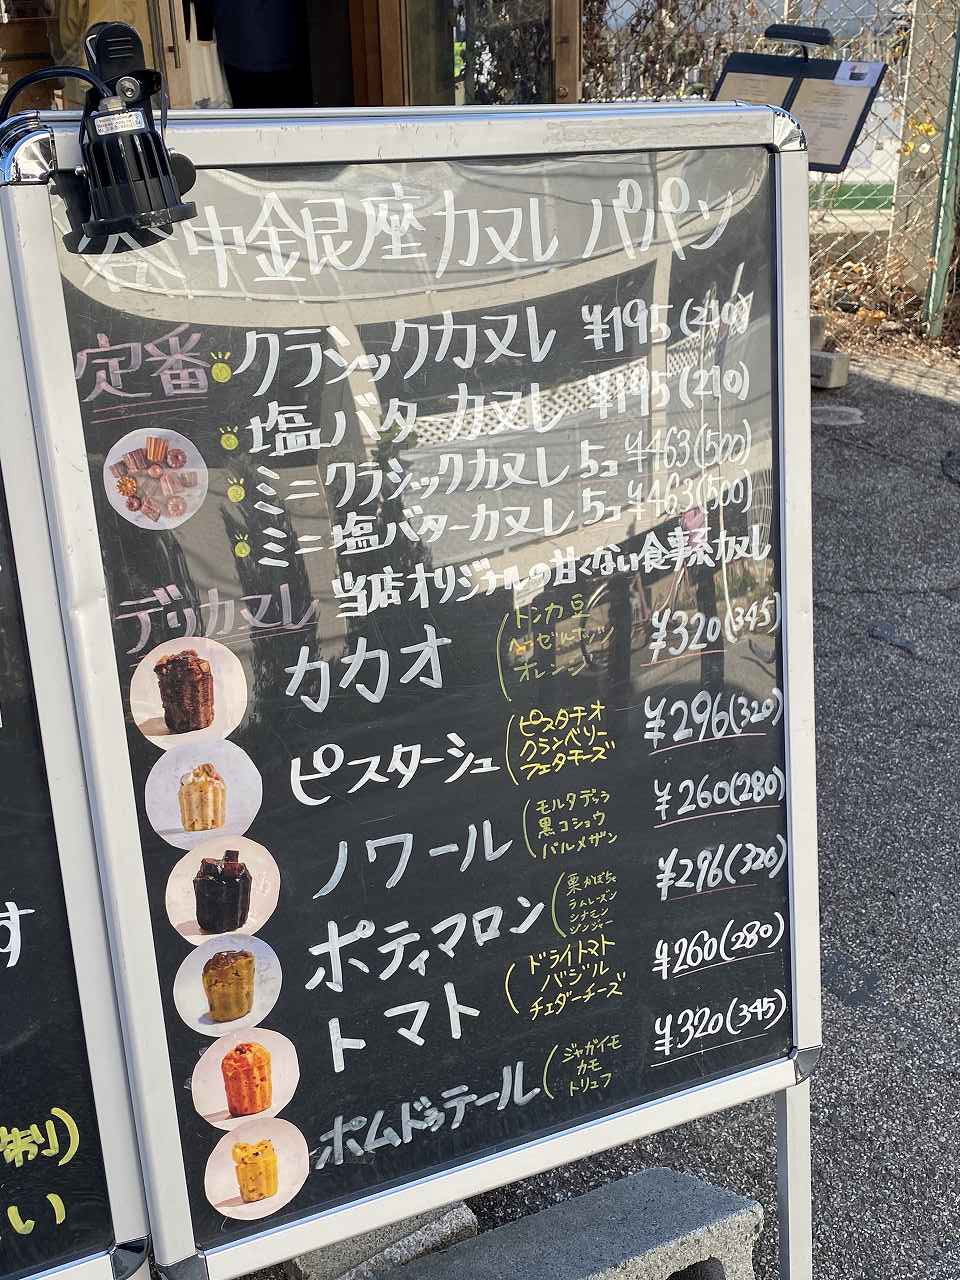 谷中銀座カヌレ パパン
定番 クラシックカヌレ ¥195(210)
塩バターカヌレ ¥195(210)
ミニクラシックカヌレ 5コ ¥463(500)
ミニ塩バターカヌレ 5コ ¥463(500)
デリカヌレ 当店オリジナルの甘くない食事系カヌレ
カカオ (トンカ豆 ¥320(345)
ヘーゼルナッツ
オレンジ
ピスターシュ (ピスタチオ ¥296(320)
クランベリー
フェタチーズ
ノワール (モルタデッラ ¥260(280)
黒コショウ
パルメザン
ポティマロン (栗かぼちゃ ¥296(320)
ラムレーズン
シナモン
ジンジャー
トマト (ドライトマト ¥260(280)
バジル
チェダーチーズ
ポムドゥテール (ジャガイモ ¥320(345)
カモ
トリュフ
す
い